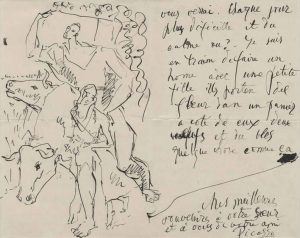 vous verrai. Chaque jour
plus dificile et du
outme ou? Je suis
en train defaire un
home avec une petite
fille Ils porten des
fleurs dans un panier
a coté de eux deux
et du bles
quelque chose comme ça
Mes meilleurs
souvenirs à votre sœur
et à vous de votre ami
Picasso